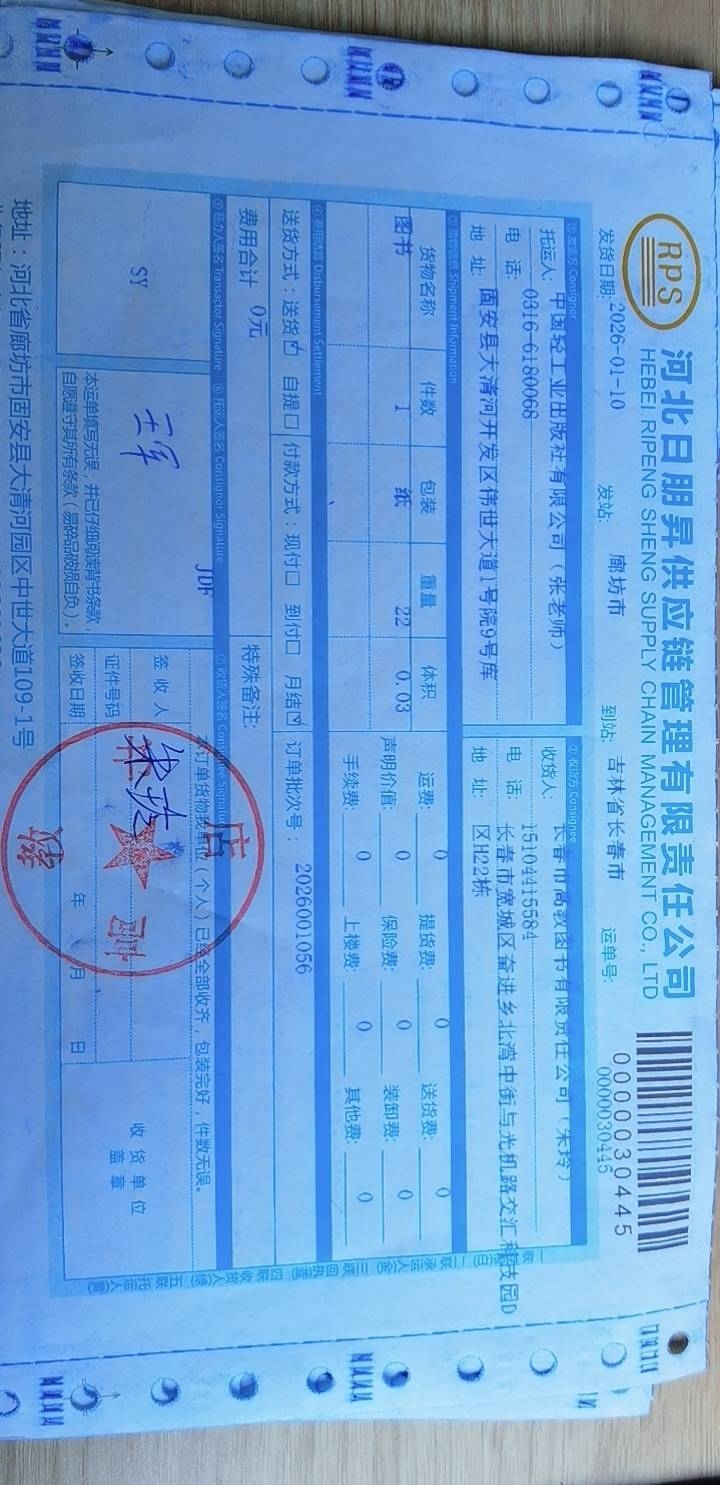 RPS
河北日朋昇供应链管理有限责任公司
HEBEI RIPENG SHENG SUPPLY CHAIN MANAGEMENT CO., LTD
0000030445
发货日期: 2026-01-10 发站: 廊坊市 到站: 吉林省长春市 运单号: 0000030445
①发货方 Consignor ②收货方 Consignee
托运人: 中国轻工业出版社有限公司(张老师)
电 话: 0316-6180068
地 址: 固安县大清河开发区伟世大道1号院9号库
收货人: 长春市高教图书有限责任公司(朱玲)
电 话: 15104415584
地 址: 长春市宽城区奋进乡北湾中街与光机路交汇科技园D
区H22栋
③货物信息 Shipment Information
货物名称 件数 包装 重量 体积
图书 1 纸 22 0.03
运费: 0 提货费: 0 送货费: 0
声明价值: 0 保险费: 0 装卸费: 0
手续费: 0 上楼费: 0 其他费: 0
④费用结算 Disbursement Settlement
送货方式: 送货☑ 自提☐ 付款方式: 现付☐ 到付☐ 月结☑ 订单批次号: 2026001056
费用合计 0元 特殊备注:
JDF
⑤经办人签名 Transactor Signature ⑥托运人签名 Consignor Signature ⑦收货人签名 Consignee Signature
SY
本运单填写无误,并已仔细阅读背书条款,
自愿遵守其所有条款(易碎品破损自负)。
本订单货物我单位(个人)已经全部收齐,包装完好,件数无误。
签 收 人
证件号码
签收日期 年 月 日
收 货 单 位
盖 章
地址:河北省廊坊市固安县大清河园区中世大道109-1号